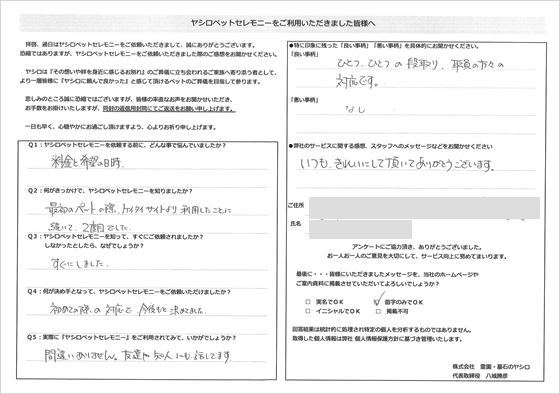 ヤシロペットセレモニーをご利用いただきました皆様へ
拝啓、過日はヤシロペットセレモニーをご依頼いただきまして、誠にありがとうございます。
恐縮ではありますが、ヤシロペットセレモニーをご依頼いただきました際のご感想をお聞かせください。
ヤシロは『その想いや絆を身近に感じるお別れ』のご葬儀に立ち会われるご家族へ寄り添う者として、
より一層皆様に「ヤシロに頼んで良かった」と感じて頂けるペットのご葬儀を目指して参ります。
悲しみのところ誠に恐縮ではございますが、皆様の率直なお声をお聞かせいただき、
お手数をお掛けいたしますが、同封の返信用封筒にてご返送をお願い申し上げます。
一日も早く、心穏やかにお過ごし頂けますよう、心よりお祈り申し上げます。
Q1：ヤシロペットセレモニーを依頼する前に、どんな事で悩んでいましたか？
料金と希望の日時。
Q2：何がきっかけで、ヤシロペットセレモニーを知りましたか？
最初のペットの際、ケイタイサイトより利用したことに
続いて、2度目でした。
Q3：ヤシロペットセレモニーを知って、すぐにご依頼されましたか？
しなかったとしたら、なぜでしょうか？
すぐにしました。
Q4：何が決め手となって、ヤシロペットセレモニーをご依頼いただけましたか？
初めての際の対応で、今後もと決めました。
Q5：実際に『ヤシロペットセレモニー』をご利用されてみて、いかがでしょうか？
間違いありません。友達や知人にも話してます
●特に印象に残った「良い事柄」「悪い事柄」を具体的にお聞かせください。
「良い事柄」
ひとつ、ひとつの段取り、職員の方々の
対応です。
「悪い事柄」
なし
●弊社のサービスに関する感想、スタッフへのメッセージなどをお聞かせください
いつも、きれいにして頂いてありがとうございます。
ご住所
氏名
アンケートにご協力頂き、ありがとうございました。
お一人お一人のご意見を大切にして、サービス向上に努めてまいります。
最後に・・・皆様にいただきましたメッセージを、当社のホームページや
ご案内資料に掲載させていただいてよろしいでしょうか？
□ 実名でOK ☑ 苗字のみでOK
□ イニシャルでOK □ 掲載不可
回答結果は統計的に処理され特定の個人を分析するものではありません。
取得した個人情報は弊社 個人情報保護方針に基づき管理いたします。
株式会社 霊園・墓石のヤシロ
代表取締役 八城勝彦